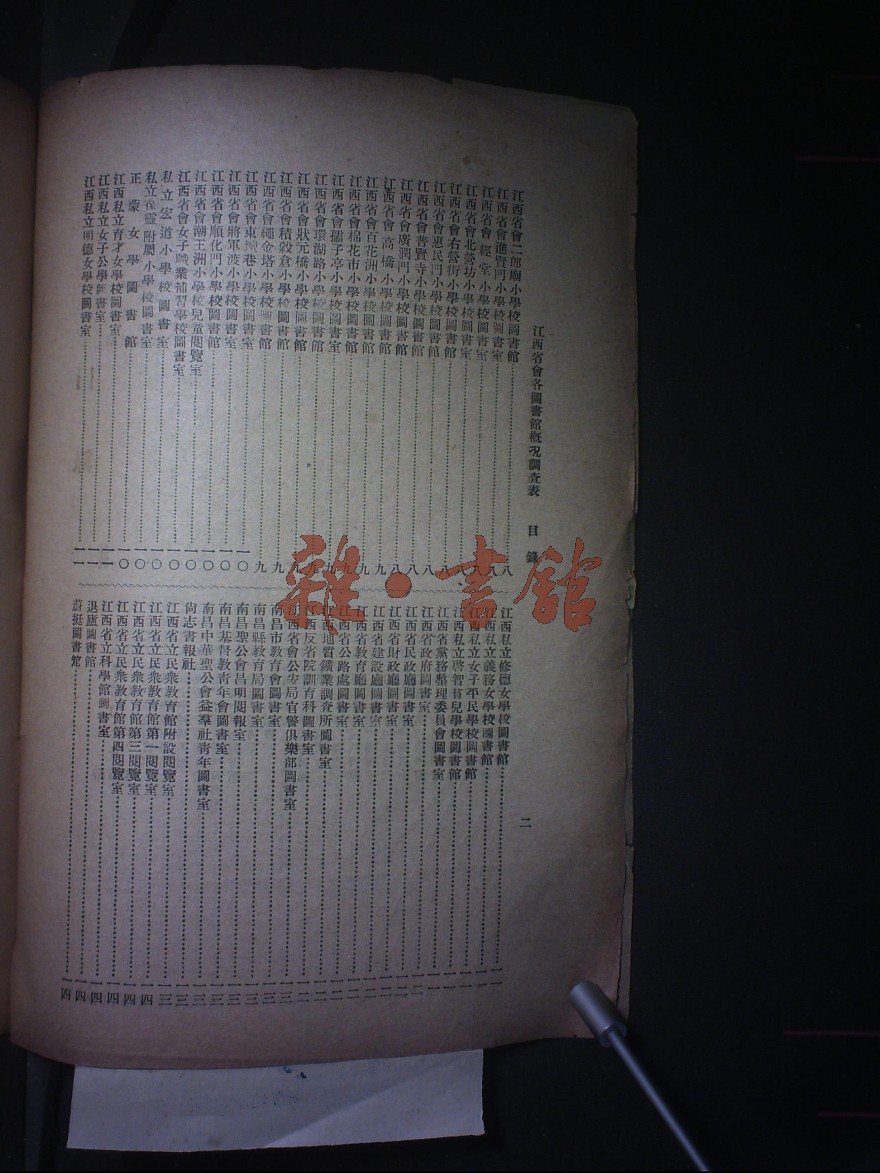 江西省會各圖書館概况調查表 目錄
二
江西省會二郎廟小學校圖書館……八
江西省會進賢門小學校圖書室……八
江西省會經堂小學校圖書室……八
江西省會北營坊小學校圖書室……八
江西省會右營街小學校圖書館……八
江西省會惠民門小學校圖書館……八
江西省會普賢寺小學校圖書館……八
江西省會廣潤門小學校圖書館……八
江西省會高橋小學校圖書館……九
江西省會百花洲小學校圖書館……九
江西省會棉花市小學校圖書館……九
江西省會孺子亭小學校圖書室……九
江西省會環湖路小學校圖書館……九
江西省會狀元橋小學校圖書館……九
江西省會積穀倉小學校圖書館……九
江西省會繩金塔小學校圖書館……九
江西省會東壇巷小學校圖書室……一〇
江西省會將軍渡小學校圖書室……一〇
江西省會順化門小學校圖書館……一〇
江西省會潮王洲小學校兒童閱覽室……一〇
江西省會女子職業補習學校圖書室……一〇
私立宏道小學校圖書室……一〇
私立葆靈附屬小學校圖書室……一〇
正蒙女學圖書館……一〇
江西私立育才女學校圖書室……一一
江西私立女子公學圖書室……一一
江西私立明德女學校圖書室……一一
江西私立修德女學校圖書館……一一
江西私立義務女學校圖書館……一一
江西私立女子平民學校圖書館……一一
江西私立啓智貧兒學校圖書館……一一
江西省黨務整理委員會圖書室……一一
江西省政府圖書室……一二
江西省民政廳圖書室……一二
江西省財政廳圖書室……一二
江西省建設廳圖書室……一二
江西省教育廳圖書室……一二
江西省公路處圖書室……一二
江西地質鑛業調查所圖書室……一二
江西反省院訓育科圖書室……一二
江西省會公安局官警俱樂部圖書室……一三
南昌市教育會圖書室……一三
南昌縣教育局圖書室……一三
南昌聖公會昌明閱報室……一三
南昌基督教青年會圖書室……一三
南昌中華聖公會益羣社青年圖書室……一三
尙志書報社……一三
江西省立民衆教育館附設閱覽室……一三
江西省立民衆教育館第一閱覽室……一四
江西省立民衆教育館第三閱覽室……一四
江西省立民衆教育館第四閱覽室……一四
江西省立科學館圖書室……一四
退廬圖書館……一四
蔚挺圖書館……一四
雜·書館